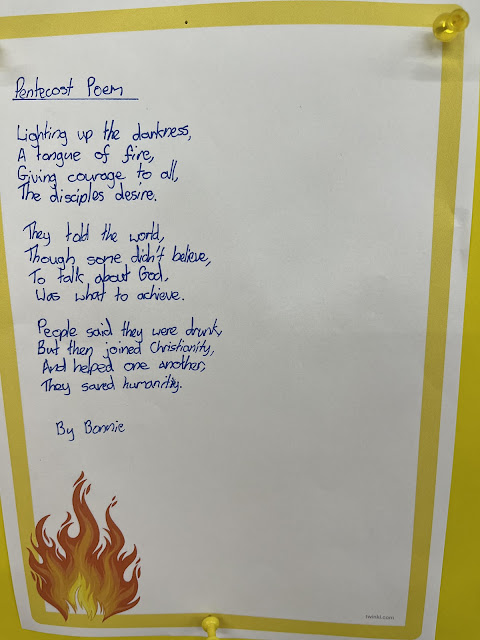 Pentecost Poem
Lighting up the darkness,
A tongue of fire,
Giving courage to all,
The disciples desire.
They told the world,
Though some didn't believe,
To talk about God,
Was what to achieve.
People said they were drunk,
But then joined Christianity,
And helped one another,
They saved humanity.
By Bonnie
twinkl.com